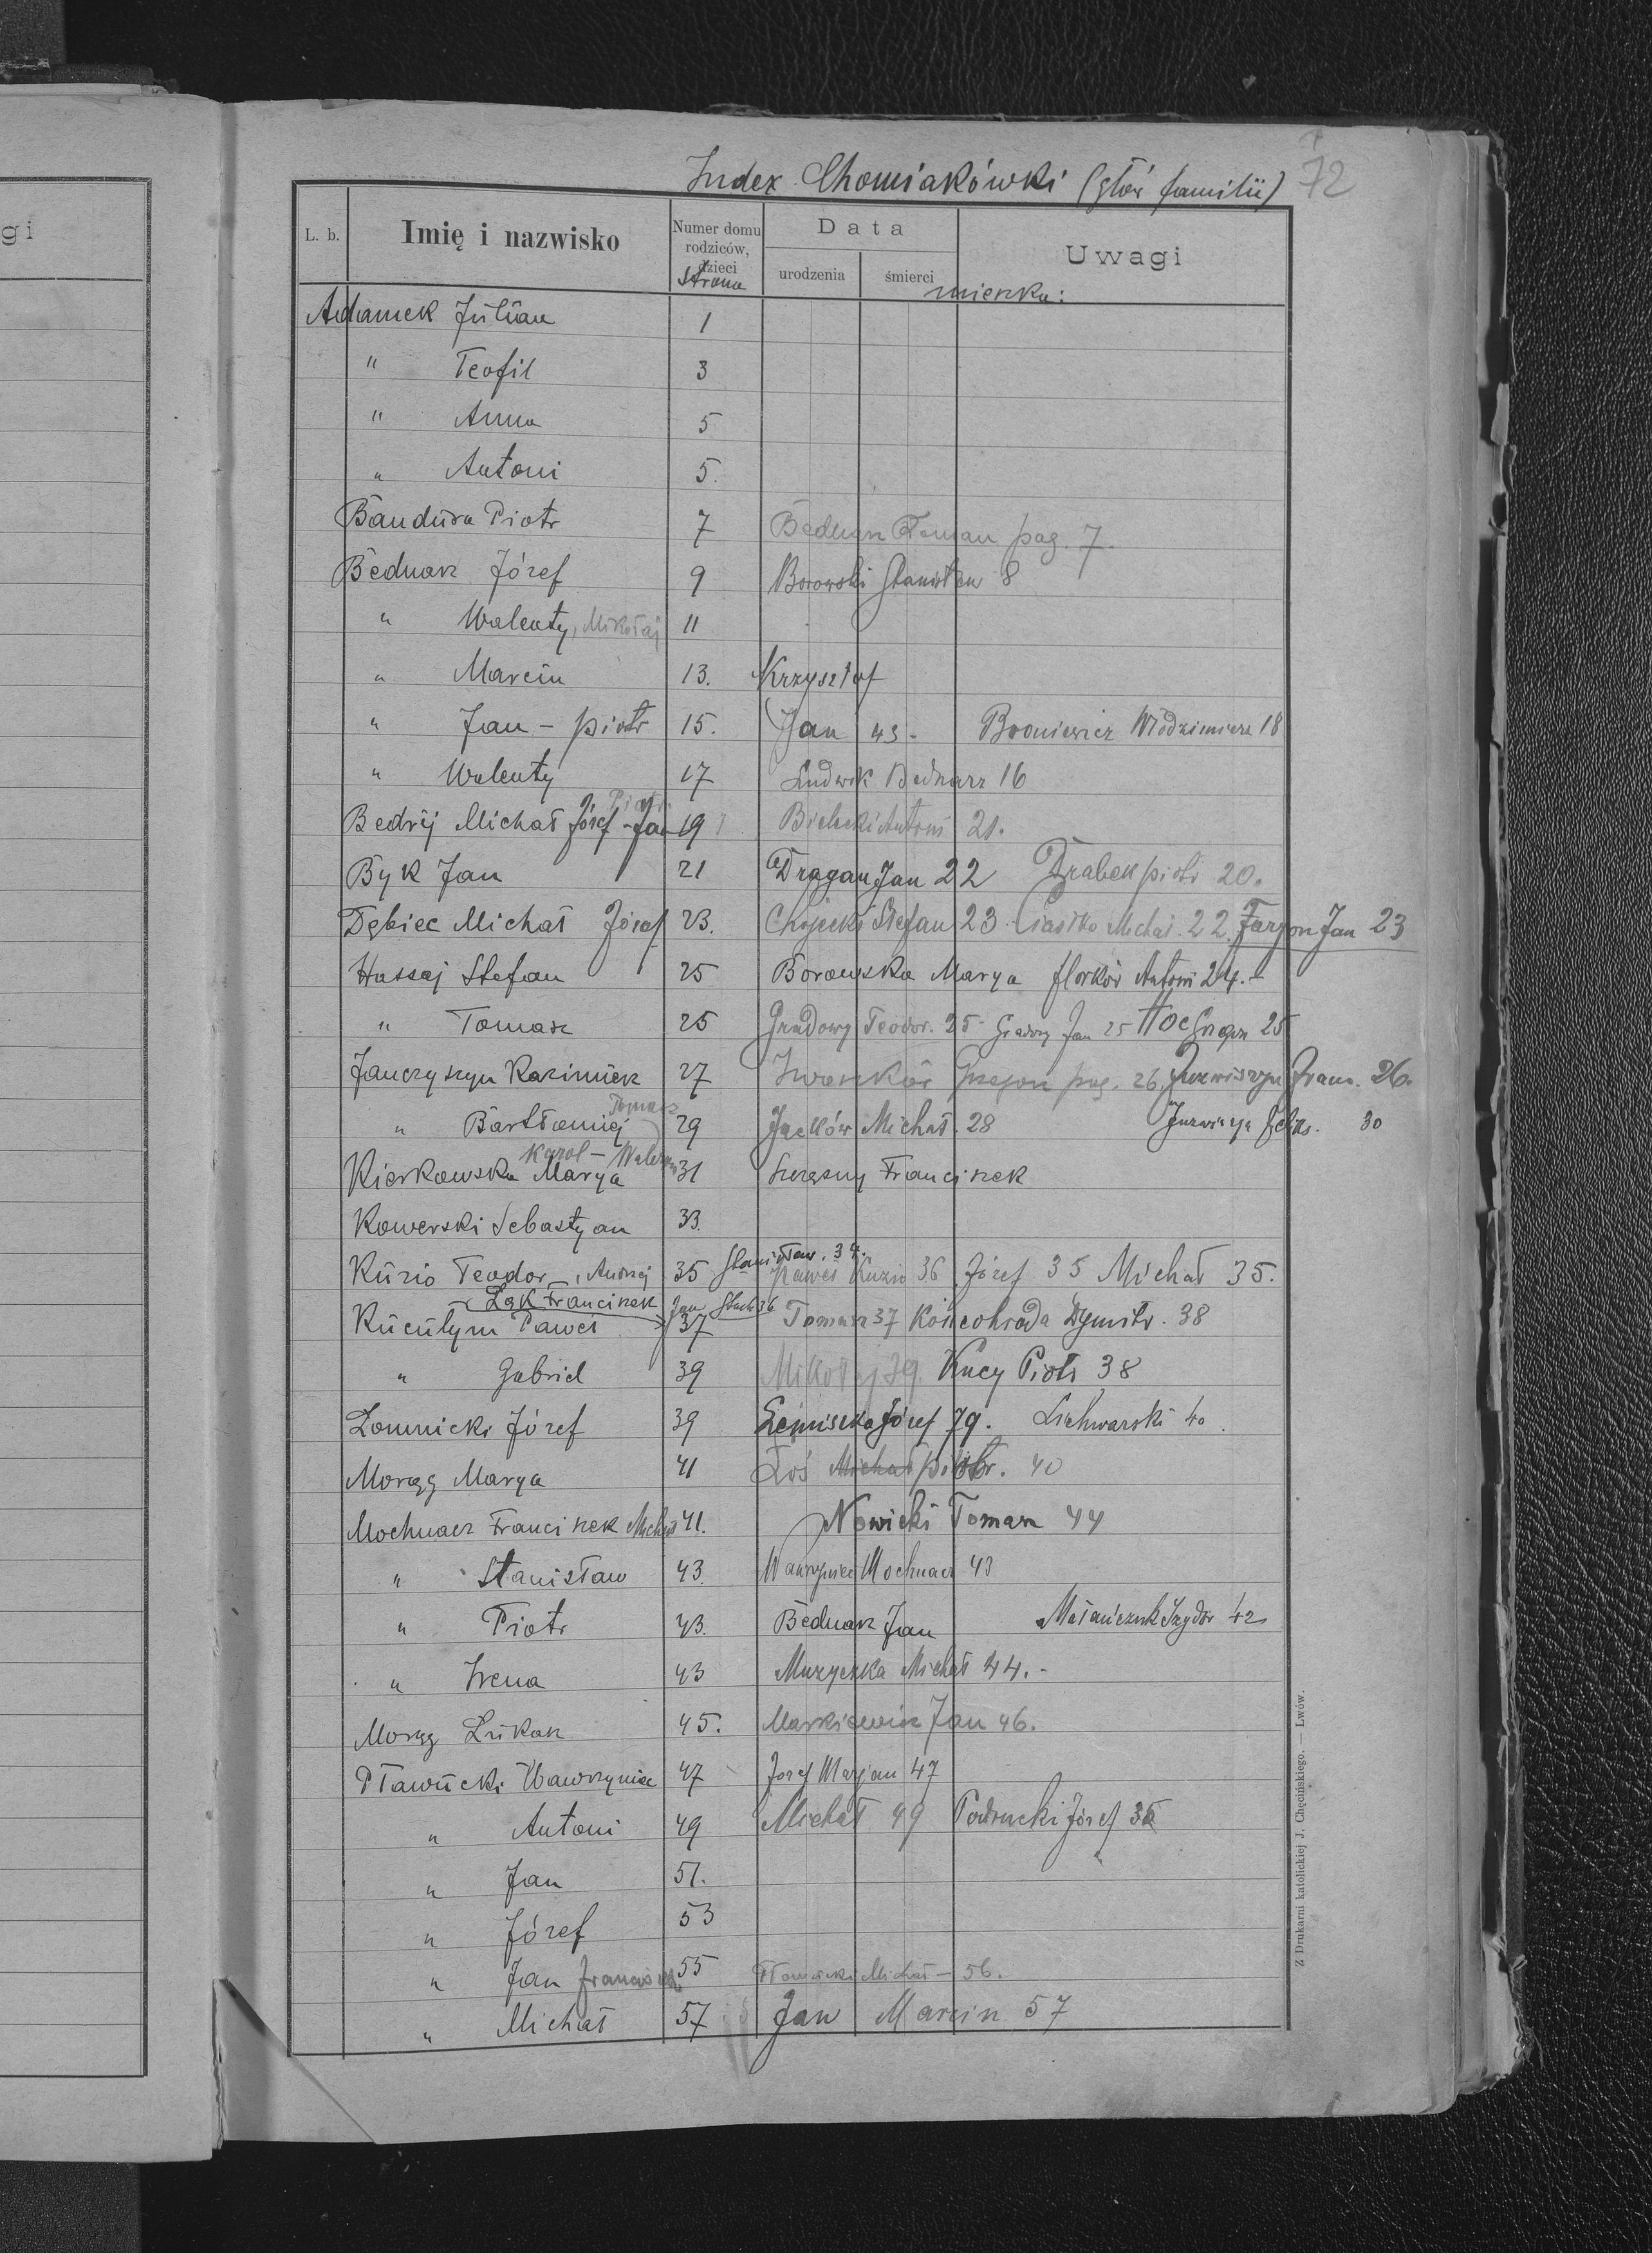 gi
Index Chomiakówki (głów familii) 72
L. b. Imię i nazwisko Numer domu rodziców, dzieci Strona Data urodzenia śmierci Uwagi
mieszka:
Adamek Julian 1
" Teofil 3
" Anna 5
" Antoni 5.
Bandura Piotr 7 Bednarz Roman pag. 7.
Bednarz Józef 9 Borowski Stanisław 8
" Walenty, Mikołaj 11
" Marcin 13. Krzysztof
" Jan - piotr 15. Jan 43 - Broniewicz Włodzimierz 18
" Walenty 17 Ludwik Bednarz 16
Piotr
Bedrij Michał Józef - Jan 19 Bielecki Antoni 21.
Byk Jan 21 Dragan Jan 22 Drabek piotr 20.
Dębiec Michał Józef 23. Chojecki Stefan 23 Ciastko Michał 22. Farjon Jan 23
Hassaj Stefan 25 Borowska Marya Florków Antoni 24.-
" Tomasz 25 Gradowy Teodor. 25 - Gradowy Jan 25 Hoc Grzegorz 25
Janczyszyn Kazimierz 27 Iwaszków Grzegorz pag. 26. Juzwiszyn Franc. 26.
Tomasz
" Bartłomiej 29 Jacków Michał. 28 Juzwiszyn Feliks. 30
Karol - Walerian
Kierkowska Marya 31 Szczęsny Franciszek
Kowerski Sebastyan 33.
Stanisław. 34.
Kuzio Teodor -, Andrzej 35 Paweł Kuzio 36 Józef 35 Michał 35.
Żąk Franciszek Jan Stach 36
Kuculym Paweł 37 Tomasz 37 Końcohrada Dymitr. 38
" Gabriel 39 Mikołaj 39. Kucy Piotr 38
Łomnicki Józef 39 Lemiszka Józef 79. Lichwarski 40.
Morąg Marya 41 Łoś Michał piotr. 40
Mochnacz Franciszek Michał 41. Nowicki Tomasz 44
" Stanisław 43. Wawrzyniec Mochnacz 43
" Piotr 43. Bednarz Jan Matańczuk Izydor 42
" Irena 43 Muzyczka Michał 44.-
Morąg Łukasz 45. Markiewicz Jan 46.
Pławucki Wawrzyniec 47 Józef Marjan 47
" Antoni 49 Michał 49 Podrucki Józef 35
" Jan 51.
" Józef 53
" Jan Franciszek 55 Pławucki Michał - 56.
" Michał 57 Jan Marcin 57
Z Drukarni katolickiej J. Chęcińskiego. — Lwów.